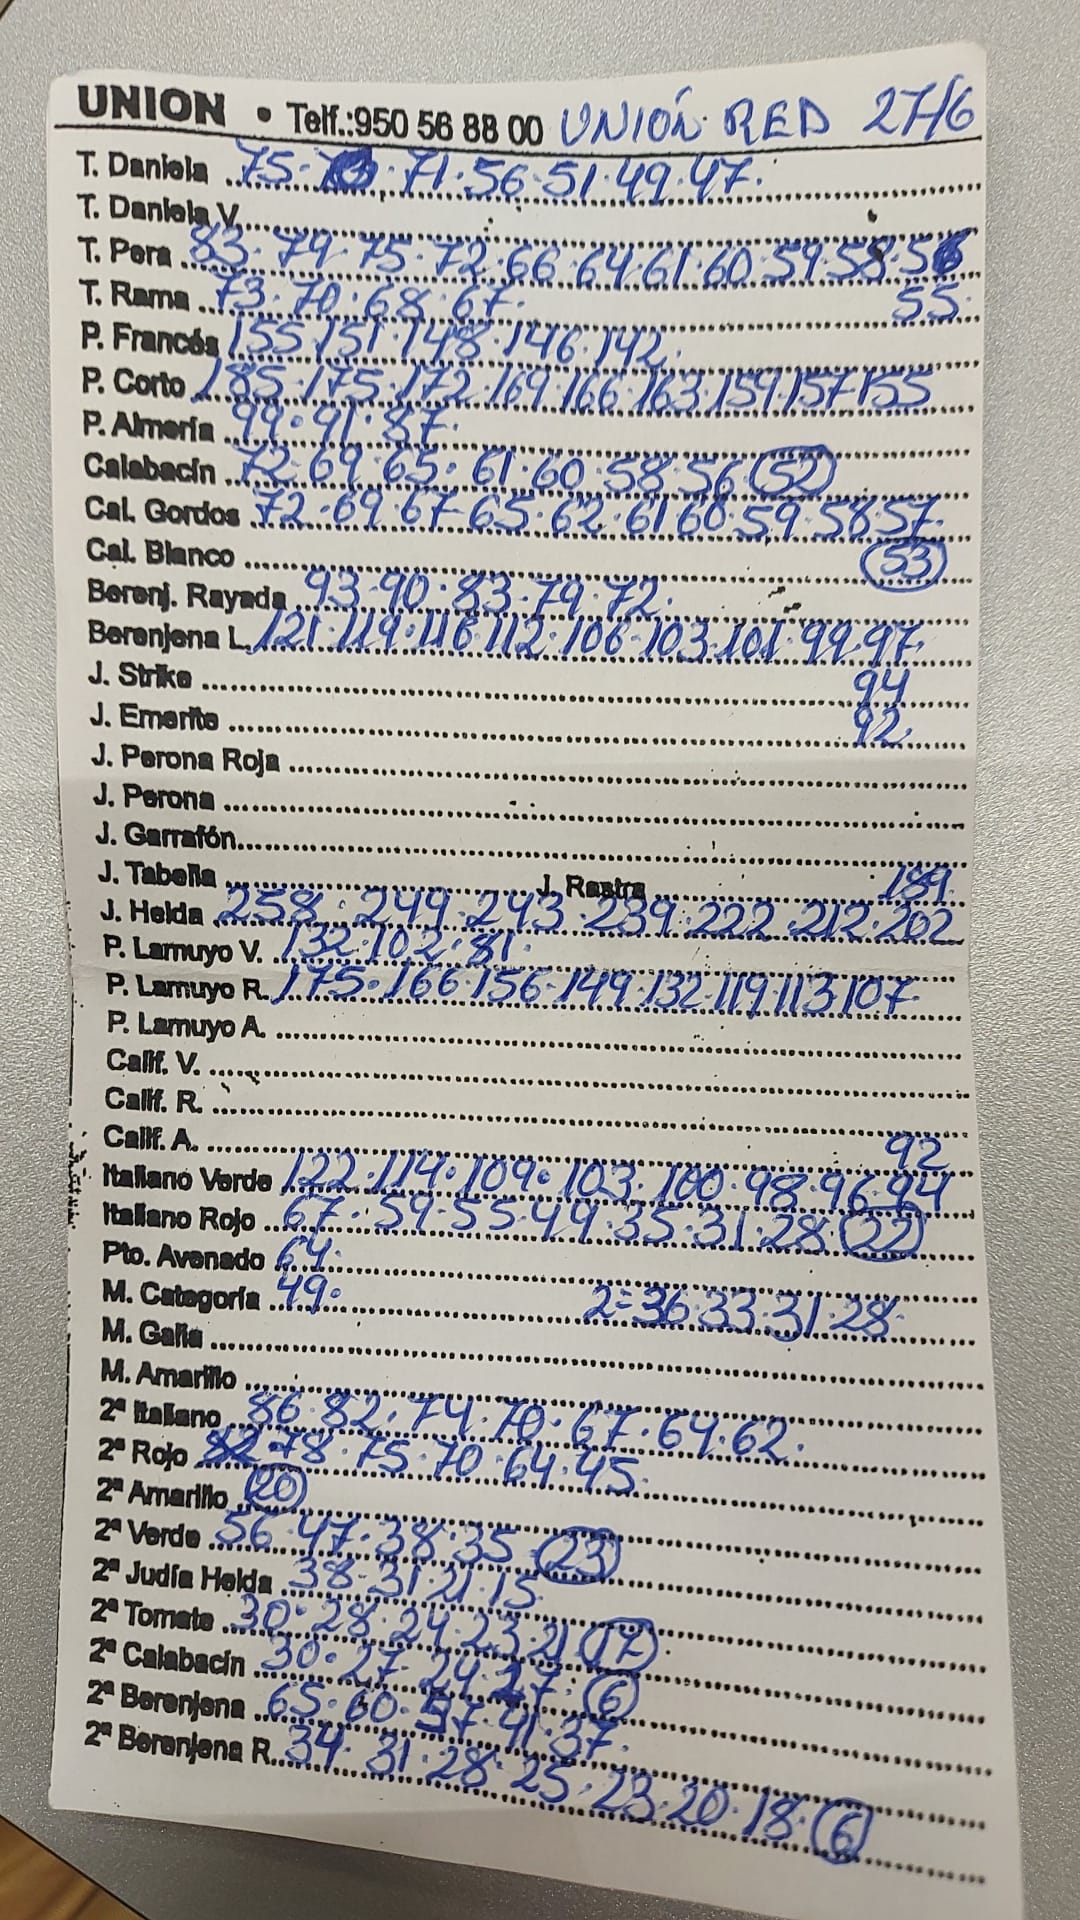 UNION • Telf.:950 56 88 00 UNIÓN RED 27/6
T. Daniela 75. 73. 71. 56. 51. 49. 47.
T. Daniela V.
T. Pera 83. 79. 75. 72. 66. 64. 61. 60. 59. 58. 56
55.
T. Rama 73. 70. 68. 67.
P. Francés 155. 151. 148. 146. 142.
P. Corto 185. 175. 172. 169. 166. 163. 159. 157. 155
P. Almería 99. 91. 87.
Calabacín 72. 69. 65. 61. 60. 58. 56. 52
Cal. Gordos 72. 69. 67. 65. 62. 61. 60. 59. 58. 57.
53
Cal. Blanco
Berenj. Rayada 93. 90. 83. 79. 72.
Berenjena L. 121. 119. 116. 112. 106. 103. 101. 99. 97.
94
92.
J. Strike
J. Emerite
J. Perona Roja
J. Perona
J. Garrafón
J. Tabella J. Rastra 189.
J. Helda 258. 249. 243. 239. 222. 212. 202
P. Lamuyo V. 132. 102. 81.
P. Lamuyo R. 175. 166. 156. 149. 132. 119. 113. 107.
P. Lamuyo A.
Calif. V.
Calif. R.
Calif. A. 92
Italiano Verde 122. 114. 109. 103. 100. 98. 96. 94
Italiano Rojo 67. 59. 55. 49. 35. 31. 28. 22
Pto. Avenado 64.
M. Categoría 49. 2= 36. 33. 31. 28.
M. Galia
M. Amarillo
2ª Italiano 86. 82. 74. 70. 67. 64. 62.
2ª Rojo 82. 78. 75. 70. 64. 45.
2ª Amarillo 20
2ª Verde 56. 47. 38. 35 23
2ª Judía Helda 38. 31. 21. 15.
2ª Tomate 30. 28. 24. 23. 21 17
2ª Calabacín 30. 27. 24. 6
2ª Berenjena 65. 60. 57. 41. 37.
2ª Berenjena R. 34. 31. 28. 25. 23. 20. 18. 6